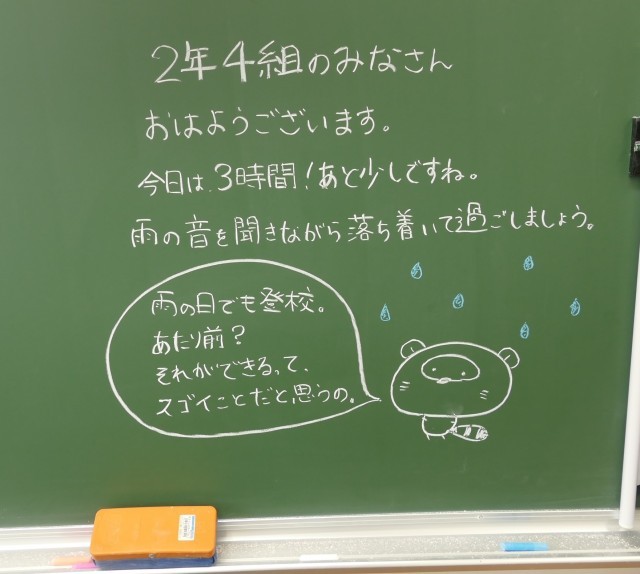 2年4組のみなさん
おはようございます。
今日は、3時間!あと少しですね。
雨の音を聞きながら落ち着いて過ごしましょう。
雨の日でも登校。
あたり前?
それができるって、
スゴイことだと思うの。